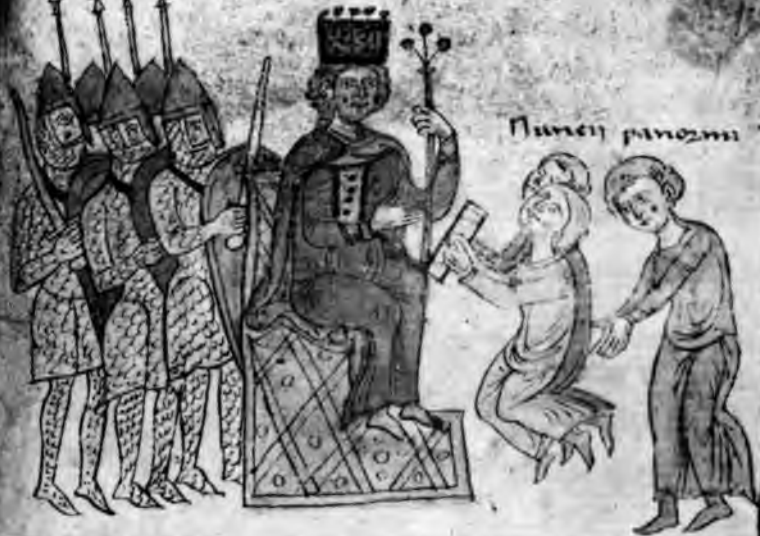 Nuncii panormi